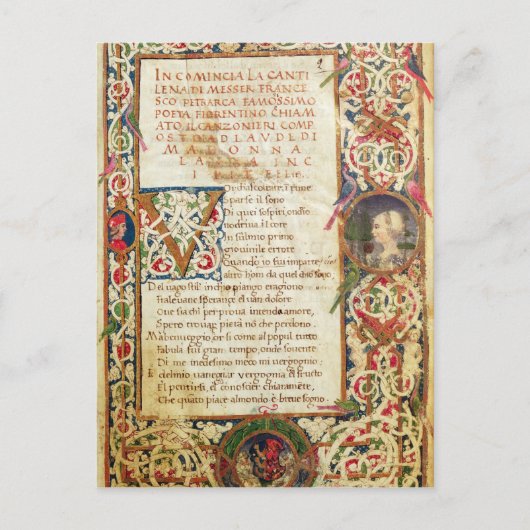 IN COMINCIA LA CANTI
LENA DI MESSER FRANCE
SCO PETRARCA FAMOSSIMO
POETA FIORENTINO, CHIAM
ATO IL CANZONIERI COMP
OSTO AD LAUDE DI
MADONNA
LAURA INC
IPIT FELE
V Oi chalscoltate i rime
Sparse il sono
Di quei sospiri, ondio
nodriva il core
In sulmio primo
giovinile errore
Quando io fui imparte
altro hom da quel
Del vago stil inchio piango eragiono
Fralevane speranze el van dolore
Que sia chi per prova intenda amore,
Spero trovar pietà non che perdono.
Ma ben veggio or si come al popul tutto
Fabula fui gran tempo, onde sovente
Di me medesimo meco mi vergogno:
E delmio vaneggiar vergogna el fructo
El pentirsi, el conoscer chiaramente,
Che quato piace almondo è breve sogno.